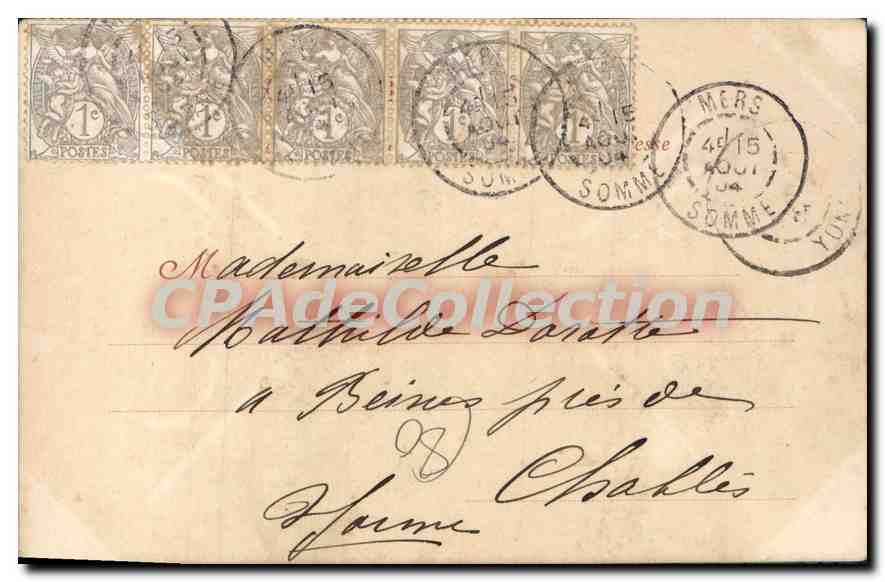 1c 1c 1c 1c 1c
POSTES POSTES POSTES POSTES POSTES
MERS
4E 15
AOUT
04
SOMME
SOMME
YON
Mademaiselle
CPAdeCollection
Mathilde
a Beines près de
Chablis
Yonne